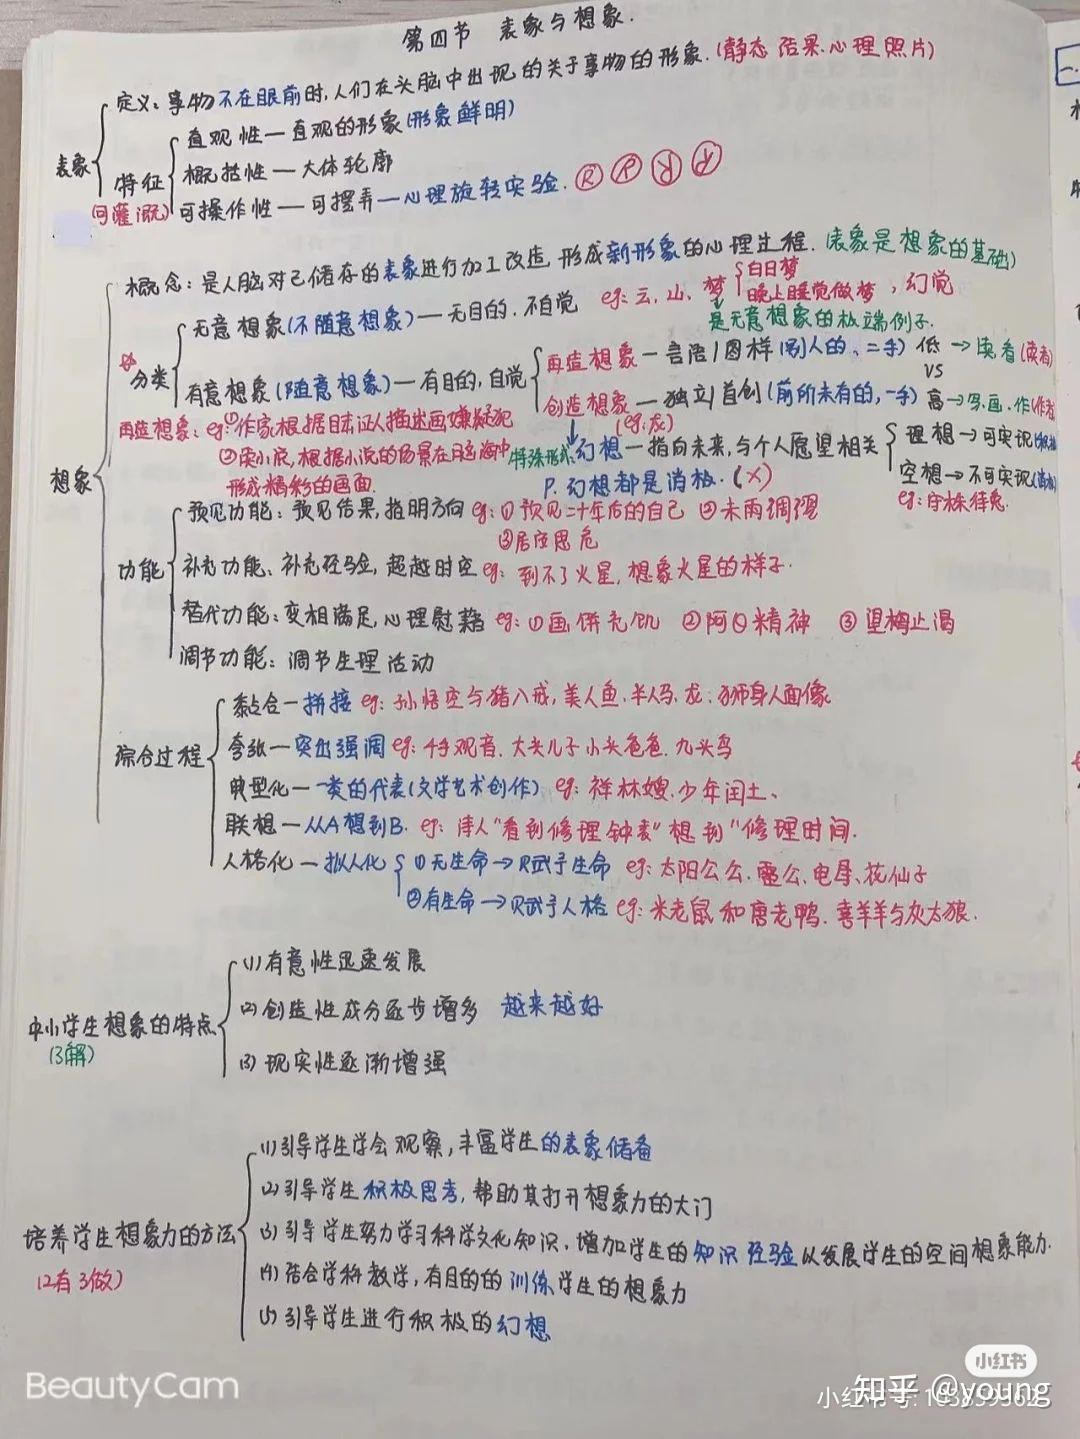 第四节 表象与想象.
定义：事物不在眼前时,人们在头脑中出现的关于事物的形象.(静态 结果.心理照片)
表象
特征
直观性—直观的形象(形象鲜明)
概括性—大体轮廓
可操作性—可摆弄—心理旋转实验.
(可灌溉)
概念：是人脑对已储存的表象进行加工改造,形成新形象的心理过程.(表象是想象的基础)
无意想象(不随意想象)—无目的.不自觉 eg:云、山、梦 白日梦 晚上睡觉做梦，幻觉
是无意想象的极端例子.
分类
有意想象(随意想象)—有目的,自觉
再造想象—言语/图样(别人的、二手)低→读者(读者)
VS
创造想象—独立/首创(前所未有的,一手)高→写.画.作(作者)
(eg:龙)
再造想象：eg:①作家根据目击证人描述画嫌疑犯
②读小说,根据小说的场景在脑海中
形成精彩的画面.
特殊形式:幻想—指向未来,与个人愿望相关
理想→可实现
空想→不可实现
eg:守株待兔.
P.幻想都是消极.(×)
想象
功能
预见功能：预见结果,指明方向 eg:①预见二十年后的自己 ②未雨绸缪
③居安思危
补充功能：补充经验,超越时空 eg:到不了火星,想象火星的样子.
替代功能：变相满足,心理慰藉 eg:①画饼充饥 ②阿Q精神 ③望梅止渴
调节功能：调节生理活动
综合过程
黏合—拼接 eg:孙悟空与猪八戒,美人鱼.半人马.龙.狮身人面像
夸张—突出强调 eg:千手观音.大头儿子小头爸爸.九头鸟
典型化—一类的代表(文学艺术创作) eg:祥林嫂.少年闰土、
联想—从A想到B. eg:诗人“看到修理钟表”想到“修理时间.
人格化—拟人化 ①无生命→赋予生命 eg:太阳公公.雷公、电母、花仙子
②有生命→赋予人格 eg:米老鼠和唐老鸭.喜羊羊与灰太狼.
中小学生想象的特点
(3解)
(1)有意性迅速发展
(2)创造性成分逐步增多 越来越好
(3)现实性逐渐增强
培养学生想象力的方法
(2有3做)
(1)引导学生学会观察,丰富学生的表象储备
(2)引导学生积极思考,帮助其打开想象力的大门
(3)引导学生努力学习科学文化知识.增加学生的知识经验以发展学生的空间想象能力.
(4)结合学科教学,有目的的训练学生的想象力
(5)引导学生进行积极的幻想
BeautyCam
小红书
知乎 @young